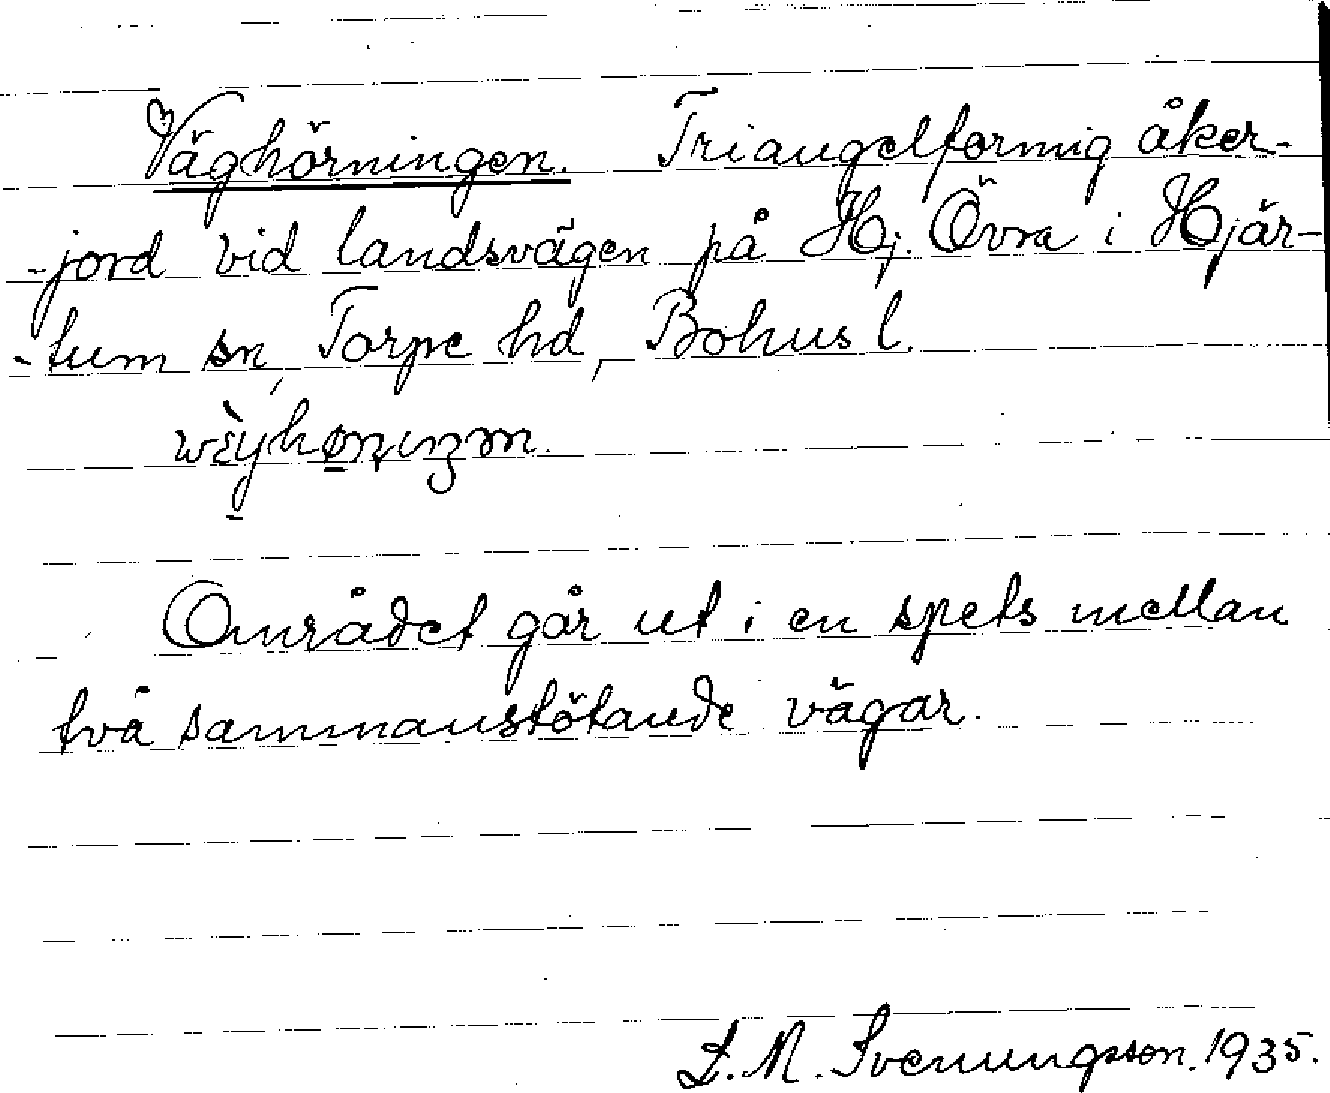 Väghörningen. Triangelformig åker-
-jord vid landsvägen på Hj. Övra i Hjär-
-tum sn, Torpe hd, Bohus l.
Området går ut i en spets mellan
två sammanstötande vägar.
L. M. Svenungsson. 1935.